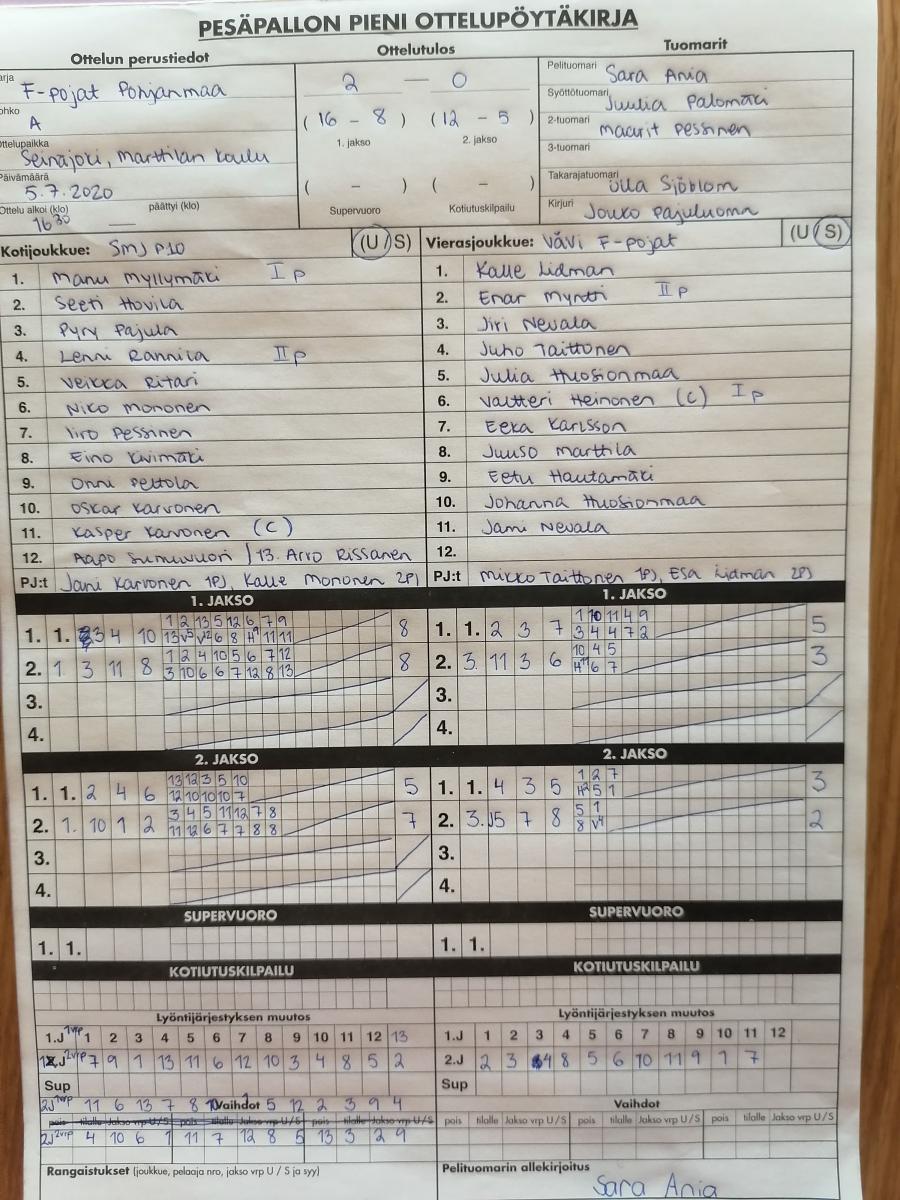 PESÄPALLON PIENI OTTELUPÖYTÄKIRJA
Ottelun perustiedot
F-pojat Pohjanmaa
A
Ottelupaikka
Seinäjoki, Marttilan koulu
Päivämäärä
5.7.2020
Ottelu alkoi (klo) päättyi (klo)
16 30 —
Ottelutulos
2 — 0
( 16 - 8 ) ( 12 - 5 )
1. jakso 2. jakso
( - ) ( - )
Supervuoro Kotiutuskilpailu
Tuomarit
Pelituomari Sara Ania
Syöttötuomari Juulia Palomäki
2-tuomari Maarit Pessinen
3-tuomari
Takarajatuomari Ulla Sjöblom
Kirjuri Jouko Pajuluoma
Kotijoukkue: SMJ P10 (U/S)
1. Manu Myllymäki I p
2. Seeti Hovila
3. Pyry Pajula
4. Lenni Rannila II p
5. Veikka Ritari
6. Niko Mononen
7. Iiro Pessinen
8. Eino Kivimäki
9. Onni Peltola
10. Oskar Karvonen
11. Kasper Karvonen (C)
12. Aapo / 13. Arvo Rissanen
PJ:t Jani Karvonen 1PJ, Kalle Mononen 2PJ
Vierasjoukkue: VäVi F-pojat (U/S)
1. Kalle Lidman
2. Enar Myntti II p
3. Jiri Nevala
4. Juho Taittonen
5. Julia Huosionmaa
6. Valtteri Heinonen (C) I p
7. Eeka Karlsson
8. Juuso Marttila
9. Eetu Hautamäki
10. Johanna Huosionmaa
11. Jami Nevala
12.
PJ:t Mikko Taittonen 1PJ, Esa Lidman 2PJ
1. JAKSO
1 2 13 5 12 6 7 9
1. 1. 3 4 10 8
13 V5 V2 6 8 H9 11 11
1 2 4 10 5 6 7 12
2. 1. 3 11 8 8
3 10 6 6 7 12 8 13
3.
4.
1. JAKSO
1 10 11 4 9
1. 1. 2 3 7 5
3 4 4 7 2
10 4 5
2. 3. 11 3 6 3
H11 6 7
3.
4.
2. JAKSO
13 12 3 5 10
1. 1. 2 4 6 5
12 10 10 10 7
3 4 5 11 12 7 8
2. 1. 10 1 2 7
11 12 6 7 7 8 8
3.
4.
2. JAKSO
1 2 7
1. 1. 4 3 5 3
H2 5 1
5 1
2. 3. 5 7 8 2
8 V4
3.
4.
SUPERVUORO
1. 1.
SUPERVUORO
1. 1.
KOTIUTUSKILPAILU
KOTIUTUSKILPAILU
Lyöntijärjestyksen muutos
1.J 1vrp 1 2 3 4 5 6 7 8 9 10 11 12 13
1.J 2vrp 7 9 1 13 11 6 12 10 3 4 8 5 2
Sup
2J 1vrp 11 6 13 7 8 Vaihdot 5 12 2 3 9 4
pois tilalle Jakso vrp U/S pois tilalle Jakso vrp U/S pois tilalle Jakso vrp U/S
2J 2vrp 4 10 6 1 11 7 12 8 5 13 3 2 9
Rangaistukset (joukkue, pelaaja nro, jakso vrp U / S ja syy)
Lyöntijärjestyksen muutos
1.J 1 2 3 4 5 6 7 8 9 10 11 12
2.J 2 3 4 8 5 6 10 11 9 1 7
Sup
Vaihdot
pois tilalle Jakso vrp U/S pois tilalle Jakso vrp U/S pois tilalle Jakso vrp U/S
Pelituomarin allekirjoitus
Sara Ania